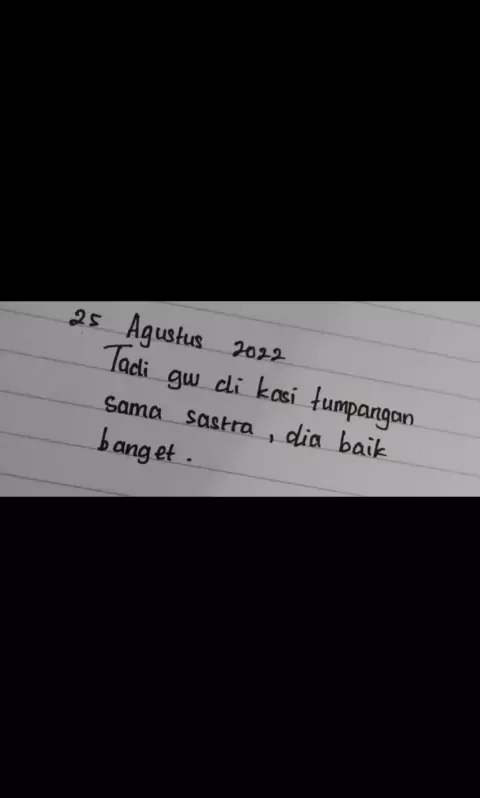 25 Agustus 2022
Tadi gw di kasi tumpangan
sama sastra, dia baik
banget.